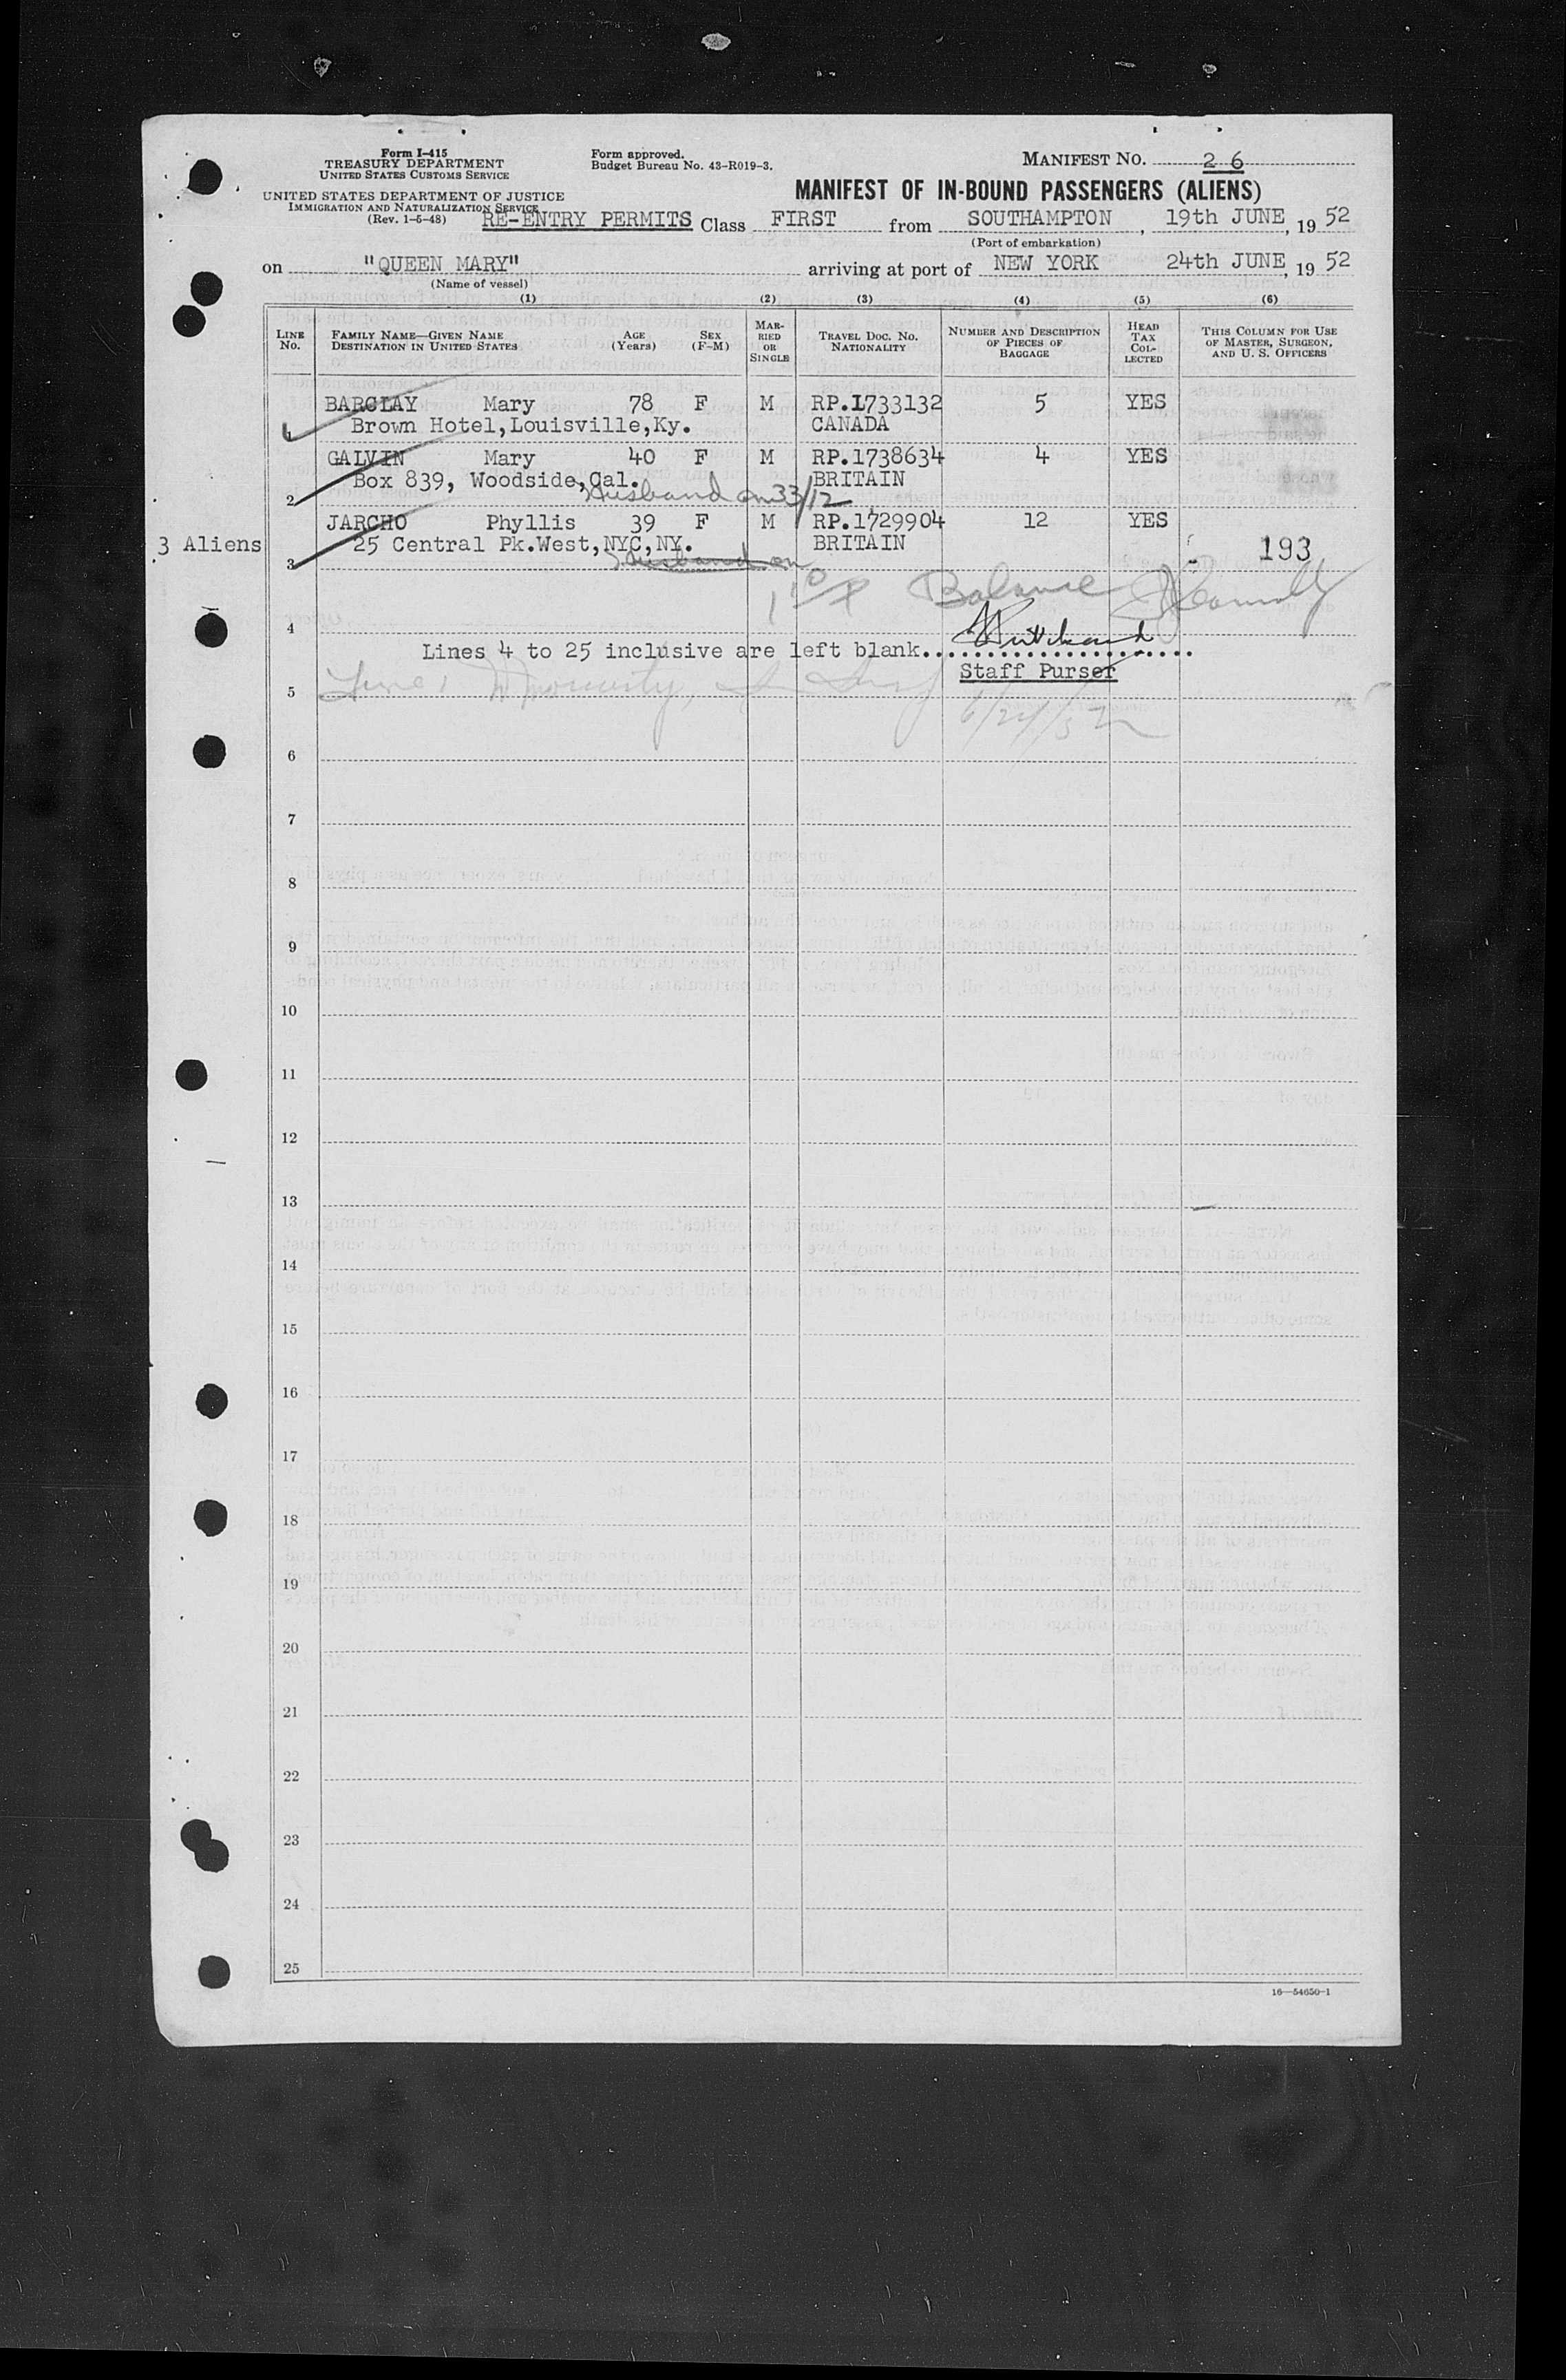 Form I-415
TREASURY DEPARTMENT
UNITED STATES CUSTOMS SERVICE
UNITED STATES DEPARTMENT OF JUSTICE
IMMIGRATION AND NATURALIZATION SERVICE
(Rev. 1-5-48)
Form approved.
Budget Bureau No. 43-R019-3.
MANIFEST NO. 26
MANIFEST OF IN-BOUND PASSENGERS (ALIENS)
RE-ENTRY PERMITS Class FIRST from SOUTHAMPTON, 19th JUNE, 19 52
(Port of embarkation)
on "QUEEN MARY" arriving at port of NEW YORK 24th JUNE, 19 52
(Name of vessel)
(1) (2) (3) (4) (5) (6)
LINE No. FAMILY NAME—GIVEN NAME DESTINATION IN UNITED STATES AGE (Years) SEX (F-M) MARRIED OR SINGLE TRAVEL DOC. NO. NATIONALITY NUMBER AND DESCRIPTION OF PIECES OF BAGGAGE HEAD TAX COLLECTED THIS COLUMN FOR USE OF MASTER, SURGEON, AND U. S. OFFICERS
BARCLAY Mary 78 F M RP.1733132 5 YES
1 Brown Hotel,Louisville,Ky. CANADA
GALVIN Mary 40 F M RP.1738634 4 YES
Box 839, Woodside,Cal. BRITAIN
2 Husband on 33/12
JARCHO Phyllis 39 F M RP.1729904 12 YES
3 Aliens 25 Central Pk.West,NYC,NY. BRITAIN 193
3 Husband on
Balance
4
Lines 4 to 25 inclusive are left blank......................
Staff Purser
5 Line 1
6/24/52
6
7
8
9
10
11
12
13
14
15
16
17
18
19
20
21
22
23
24
25
16—54650-1